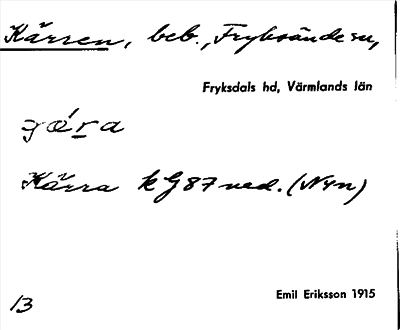 Kärren, beb., Fryksände sn,
Fryksdals hd, Värmlands län
Kärra k G 87 ned. (NYn)
Emil Eriksson 1915
13